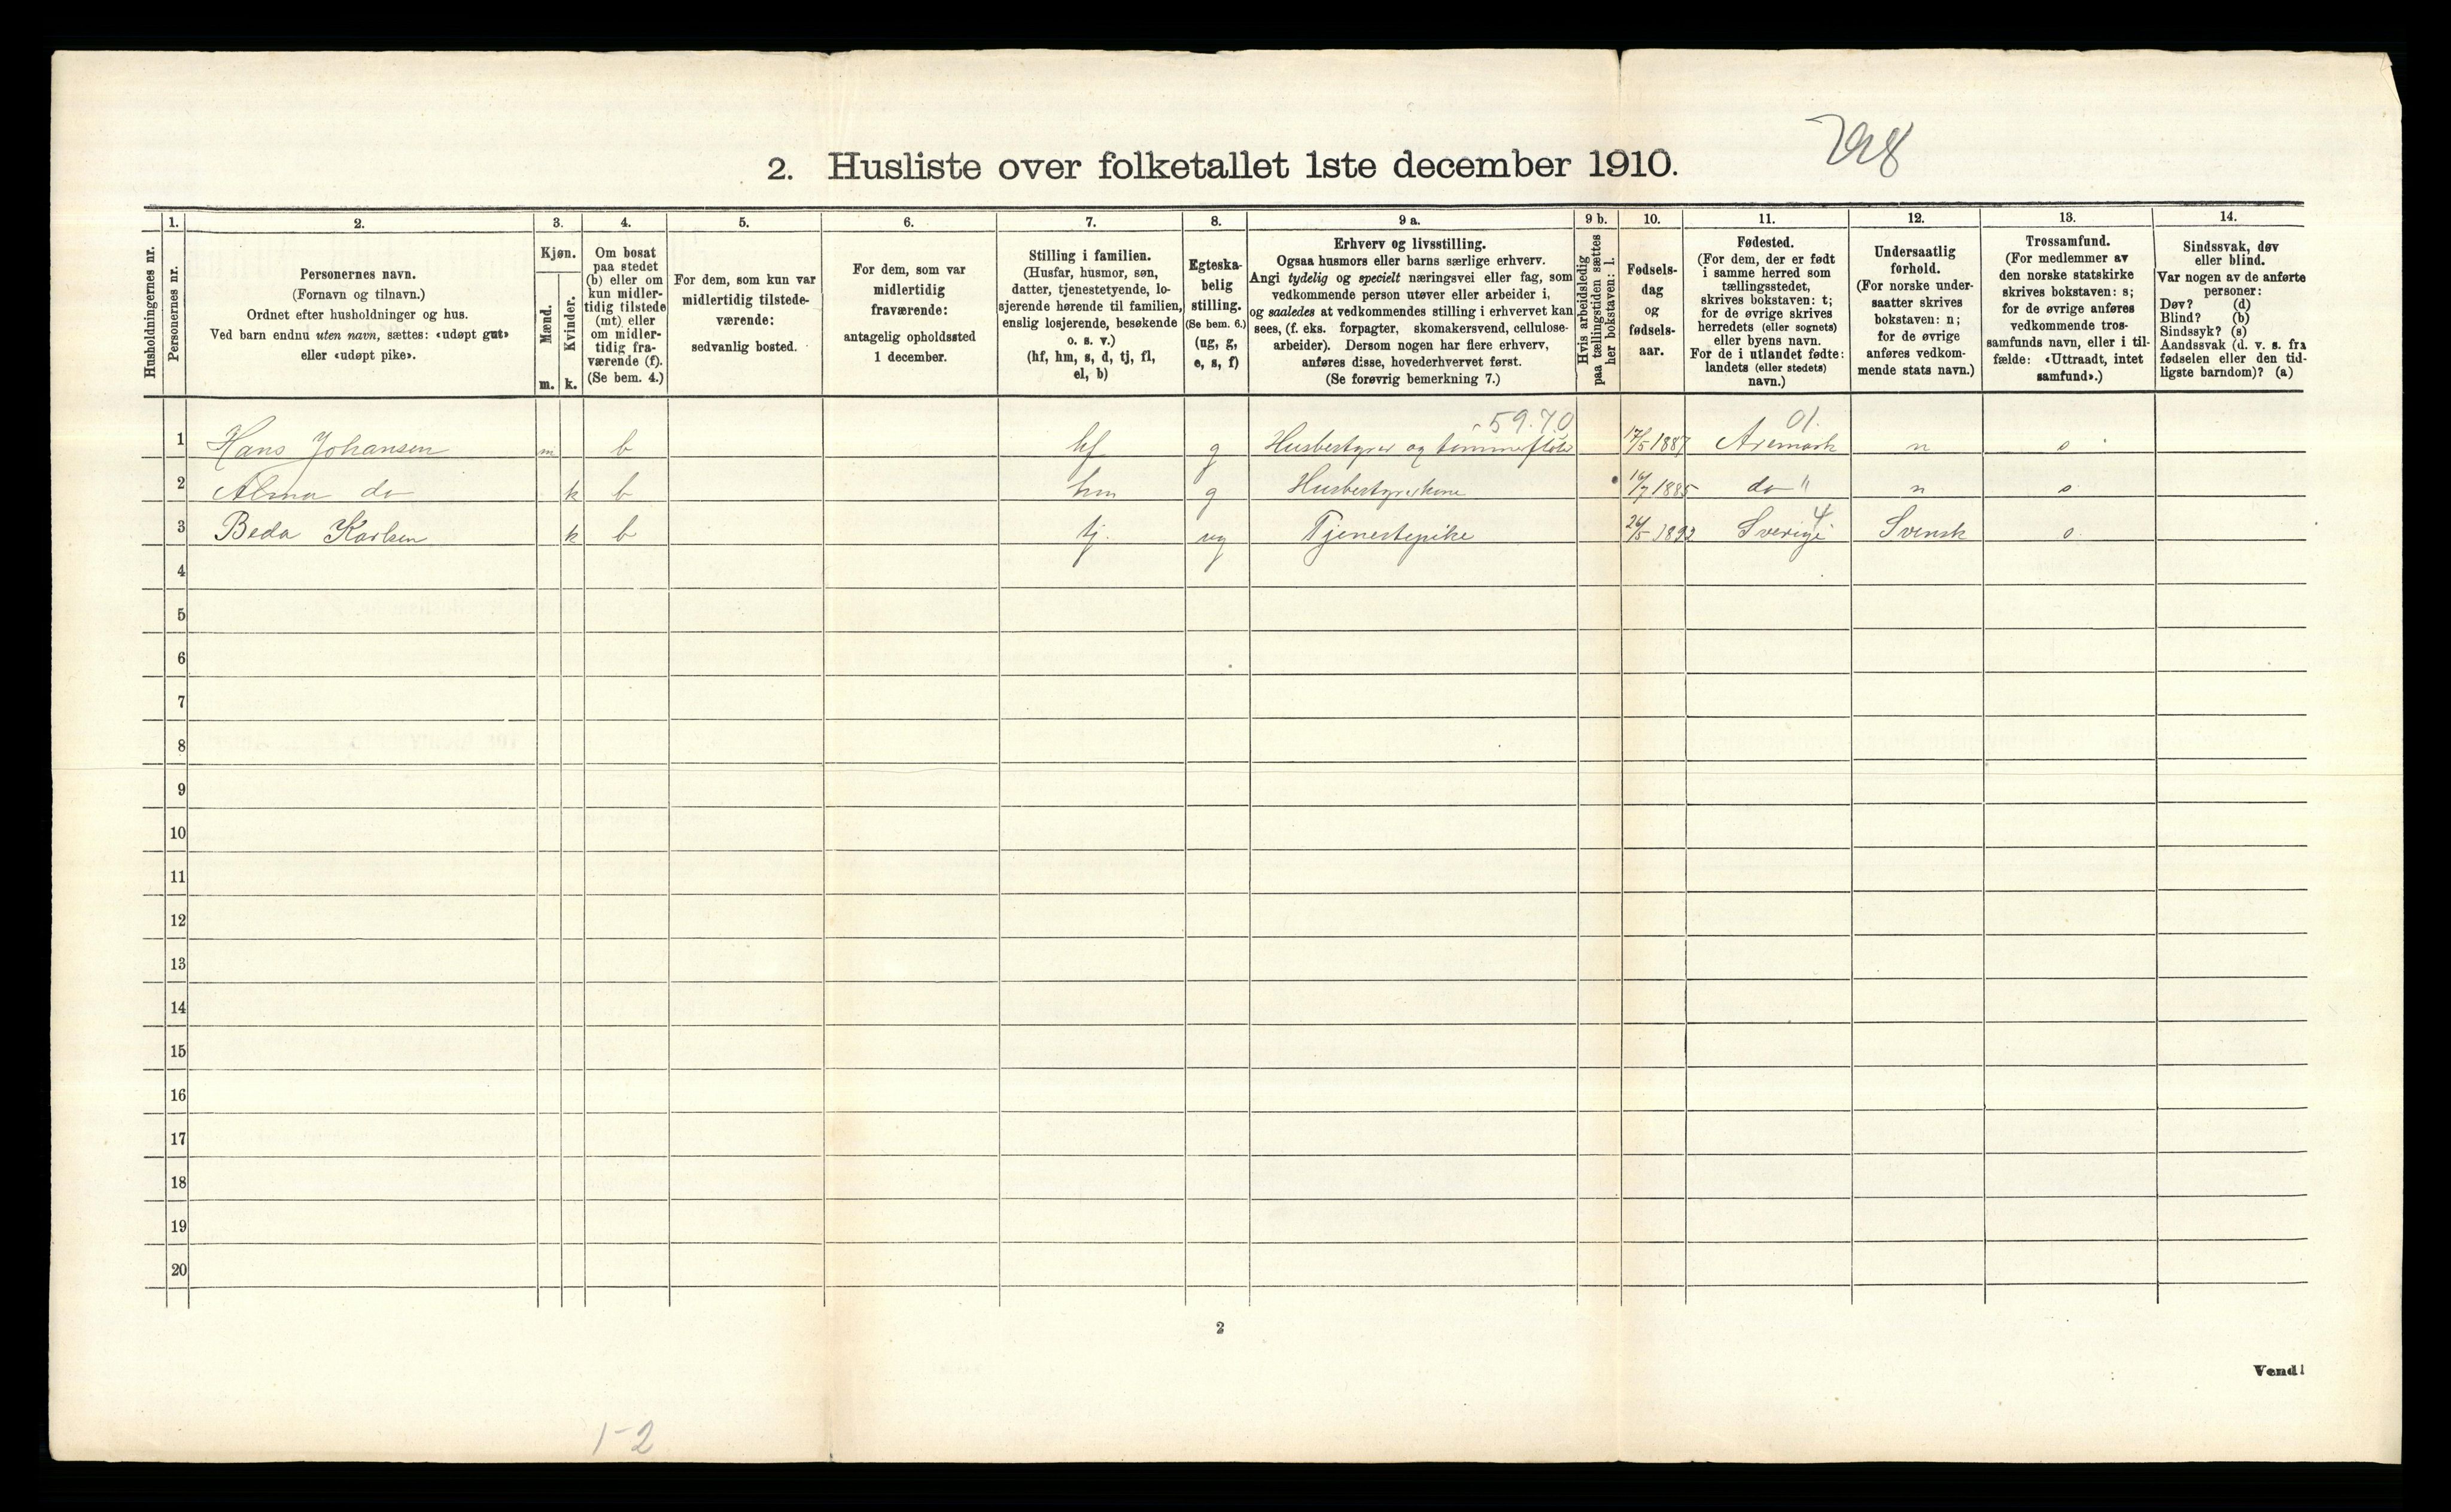 798
2. Husliste over folketallet 1ste december 1910.
Husholdningernes nr.
1.
Personernes nr.
2.
Personernes navn.
(Fornavn og tilnavn.)
Ordnet efter husholdninger og hus.
Ved barn endnu uten navn, sættes: «udøpt gut»
eller «udøpt pike».
3.
Kjøn.
Mænd.
Kvinder.
m. k.
4.
Om bosat
paa stedet
(b) eller om
kun midler-
tidig tilstede
(mt) eller
om midler-
tidig fra-
værende (f).
(Se bem. 4.)
5.
For dem, som kun var
midlertidig tilstede-
værende:
sedvanlig bosted.
6.
For dem, som var
midlertidig
fraværende:
antagelig opholdssted
1 december.
7.
Stilling i familien.
(Husfar, husmor, søn,
datter, tjenestetyende, lo-
sjerende hørende til familien,
enslig losjerende, besøkende
o. s. v.)
(hf, hm, s, d, tj, fl,
el, b)
8.
Egteska-
belig
stilling.
(Se bem. 6.)
(ug, g,
e, s, f)
9 a.
Erhverv og livsstilling.
Ogsaa husmors eller barns særlige erhverv.
Angi tydelig og specielt næringsvei eller fag, som
vedkommende person utøver eller arbeider i,
og saaledes at vedkommendes stilling i erhvervet kan
sees, (f. eks. forpagter, skomakersvend, cellulose-
arbeider). Dersom nogen har flere erhverv,
anføres disse, hovederhvervet først.
(Se forøvrig bemerkning 7.)
9 b.
Hvis arbeidsledig
paa tællingstiden sættes
her bokstaven: l.
10.
Fødsels-
dag
og
fødsels-
aar.
11.
Fødested.
(For dem, der er født
i samme herred som
tællingsstedet,
skrives bokstaven: t;
for de øvrige skrives
herredets (eller sognets)
eller byens navn.
For de i utlandet fødte:
landets (eller stedets)
navn.)
12.
Undersaatlig
forhold.
(For norske under-
saatter skrives
bokstaven: n;
for de øvrige
anføres vedkom-
mende stats navn.)
13.
Trossamfund.
(For medlemmer av
den norske statskirke
skrives bokstaven: s;
for de øvrige anføres
vedkommende tros-
samfunds navn, eller i til-
fælde: «Uttraadt, intet
samfund».)
14.
Sindssvak, døv
eller blind.
Var nogen av de anførte
personer:
Døv? (d)
Blind? (b)
Sindssyk? (s)
Aandssvak (d. v. s. fra
fødselen eller den tid-
ligste barndom)? (a)
59.70 01.
1 Hans Johansen m b hf g Husbestyrer og tømmerfløter 17/5 1887 Aremark n s
2 Alma do k b hm g Husbestyrerkone 16/7 1885 do " n s
4
3 Beda Karlsen k b tj. ug Tjenestepike 26/5 1893 Sverige Svensk s.
4
5
6
7
8
9
10
11
12
13
14
15
16
17
18
19
20
2
Vend!
1-2